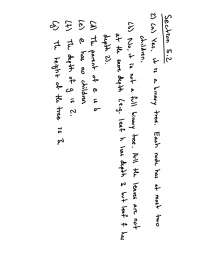 Section 5.2
2) (a) Yes, it is a binary tree. Each node has at most two
children.
(b) No, it is not a full binary tree. All the leaves are not
at the same depth (e.g. leaf h has depth 3 but leaf f has
depth 2).
(d) The parent of e is b
(e) e has no children
(f) The depth of g is 2.
(g) The height of the tree is 3.